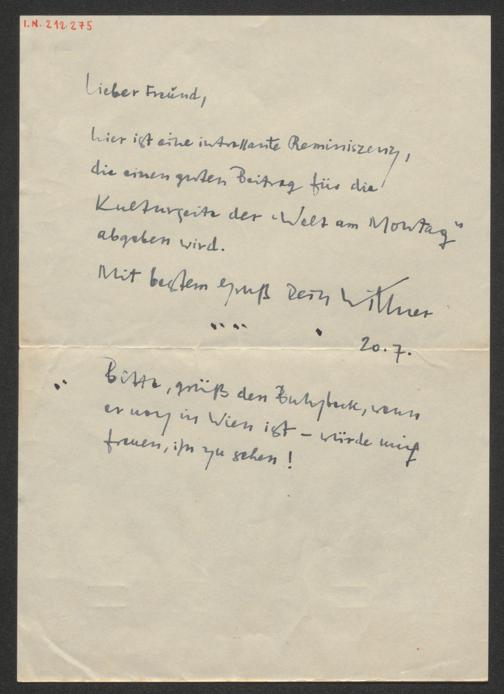 I.N. 212.275
Lieber Freund,
hier ist eine interessante Reminiszenz,
die einen guten Beitrag für die
Kulturseite der „Welt am Montag"
abgeben wird.
Mit bestem Gruß Dein
20. 7.
Bitte, grüß den, wenn
er noch in Wien ist – würde mich
freuen, ihn zu sehen!